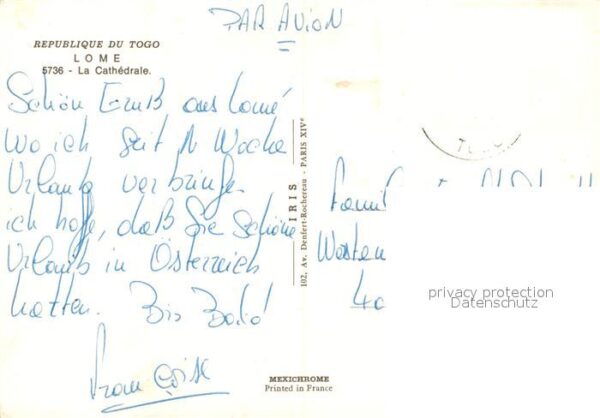 PAR AVION
REPUBLIQUE DU TOGO
LOME
5736 - La Cathédrale.
Schön Gruß aus Lomé
wo ich seit 1 Woche
Urlaub verbringe.
ich hoffe, daß Sie Schöne
Urlaub in Österreich
hatten. Bis Bald!
Françoise
IRIS
102, Av. Denfert-Rochereau - PARIS XIVe
MEXICHROME
Printed in France
Famil
Westen
40
privacy protection
Datenschutz